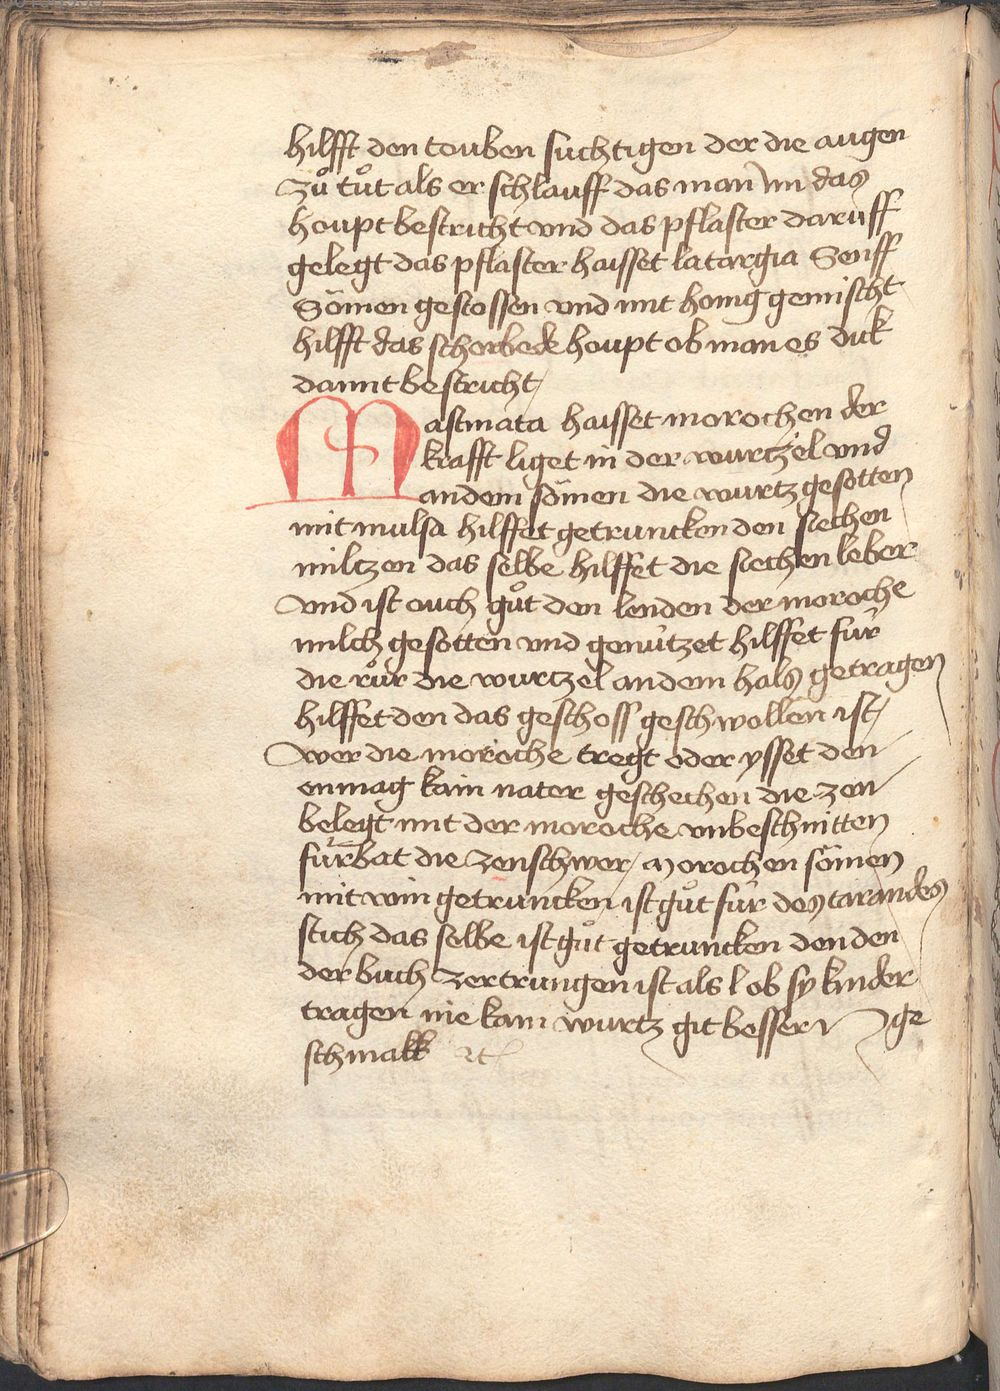 hilfft den touben suchtigen der die augen
zů tůt als er schlauff das man im das
houpt bestricht vnd das pflaster daruff
gelegt das pflaster haisset latargia Senff
Sömen gestossen vnd mit honig gemischt
hilfft das schorbede houpt ob man es dick
damit bestricht /
Mastinata haisset morochen der
krafft liget in der wurtzel vnd
an dem sömen die wurtz gesotten
mit mulsa hilffet getruncken den siechen
miltzen das selbe hilffet die siechen leber
vnd ist ouch gůt den lenden der moroche
milch gesotten vnd genützet hilffet für
die růr die wurtzel an dem hals getragen
hilffet den das geschoss geschwollen ist /
wer die moroche tregt oder ysset den
enmag kain nater geschechen die zen
belegt mit der moroche vnbeschnitten
fürbat die zenschwer / Morochen sömen
mit win getruncken ist gůt für des tarandes
stich das selbe ist gůt getruncken den den
der buch zertrungen ist als l ob sy kinder
tragen nie kain wurtz git besser ge
schmakk etc